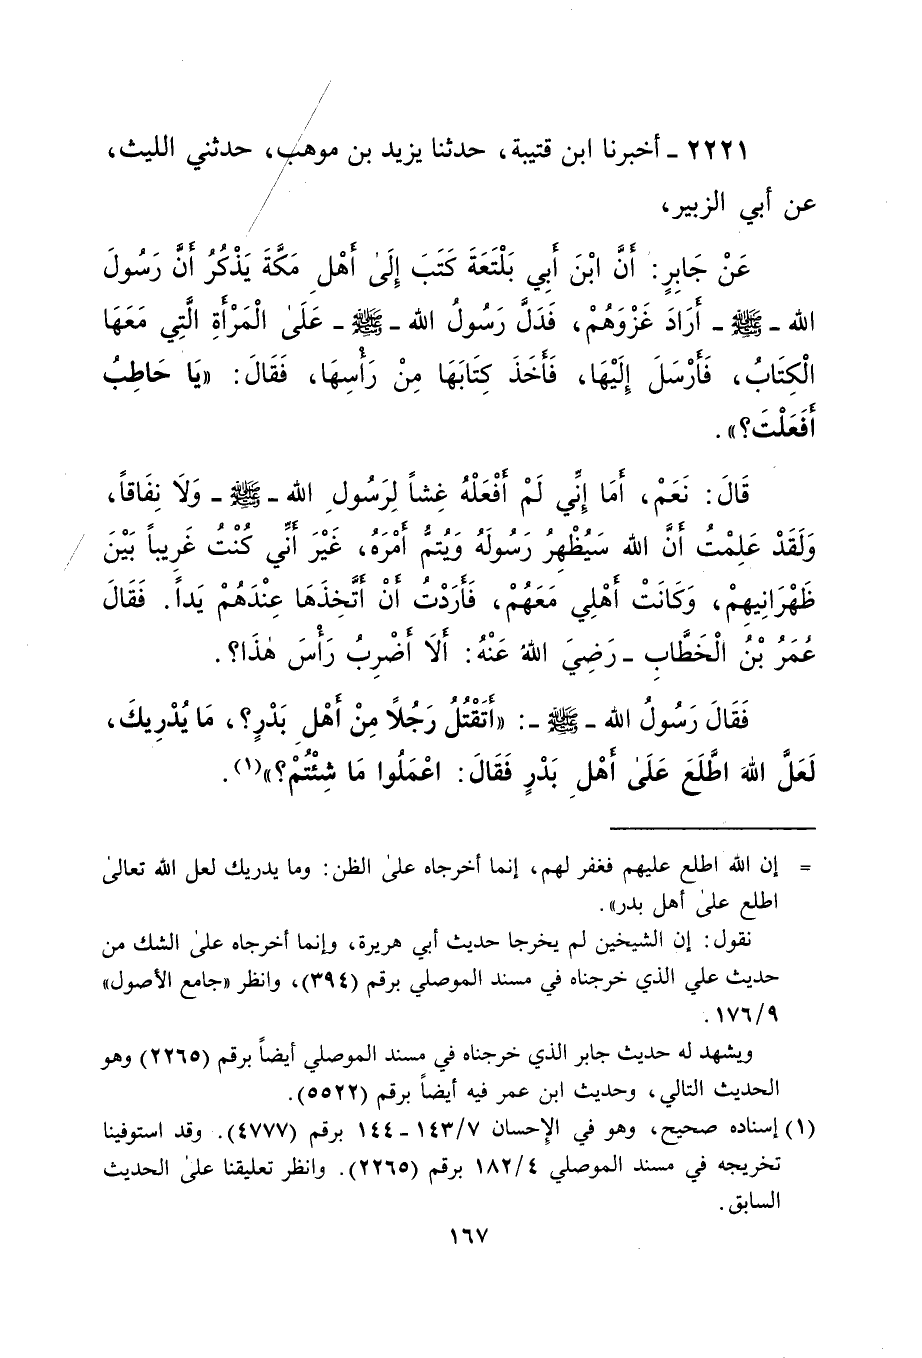 ٢٢٢١ ـ أخبرنا ابن قتيبة، حدثنا يزيد بن موهب، حدثني الليث،
عن أبي الزبير،
عَنْ جَابِرٍ: أَنَّ ابْنَ أَبِي بَلْتَعَةَ كَتَبَ إِلَىٰ أَهْلِ مَكَّةَ يَذْكُرُ أَنَّ رَسُولَ
الله ـ ﷺ ـ أَرَادَ غَزْوَهُمْ، فَدَلَّ رَسُولُ الله ـ ﷺ ـ عَلَىٰ الْمَرْأَةِ الَّتِي مَعَهَا
الْكِتَابُ، فَأَرْسَلَ إِلَيْهَا، فَأَخَذَ كِتَابَهَا مِنْ رَأْسِهَا، فَقَالَ: «يَا حَاطِبُ
أَفَعَلْتَ؟».
قَالَ: نَعَمْ، أَمَا إِنِّي لَمْ أَفْعَلْهُ غِشاً لِرَسُولِ الله ـ ﷺ ـ وَلَا نِفَاقاً،
وَلَقَدْ عَلِمْتُ أَنَّ الله سَيُظْهِرُ رَسُولَهُ وَيُتِمُّ أَمْرَهُ، غَيْرَ أَنِّي كُنْتُ غَرِيباً بَيْنَ
ظَهْرَانِيهِمْ، وَكَانَتْ أَهْلِي مَعَهُمْ، فَأَرَدْتُ أَنْ أَتَّخِذَهَا عِنْدَهُمْ يَداً. فَقَالَ
عُمَرُ بْنُ الْخَطَّابِ ـ رَضِيَ اللهُ عَنْهُ: أَلَا أَضْرِبُ رَأْسَ هٰذَا؟.
فَقَالَ رَسُولُ الله ـ ﷺ ـ: «أَتَقْتُلُ رَجُلًا مِنْ أَهْلِ بَدْرٍ؟، مَا يُدْرِيكَ،
لَعَلَّ اللهَ اطَّلَعَ عَلَىٰ أَهْلِ بَدْرٍ فَقَالَ: اعْمَلُوا مَا شِئْتُمْ؟»(١).
= إن الله اطلع عليهم فغفر لهم، إنما أخرجاه علىٰ الظن: وما يدريك لعل الله تعالىٰ
اطلع علىٰ أهل بدر».
نقول: إن الشيخين لم يخرجا حديث أبي هريرة، وإنما أخرجاه علىٰ الشك من
حديث علي الذي خرجناه في مسند الموصلي برقم (٣٩٤)، وانظر «جامع الأصول»
١٧٦/٩.
ويشهد له حديث جابر الذي خرجناه في مسند الموصلي أيضاً برقم (٢٢٦٥) وهو
الحديث التالي، وحديث ابن عمر فيه أيضاً برقم (٥٥٢٢).
(١) إسناده صحيح، وهو في الإحسان ١٤٣/٧ ـ ١٤٤ برقم (٤٧٧٧). وقد استوفينا
تخريجه في مسند الموصلي ١٨٢/٤ برقم (٢٢٦٥). وانظر تعليقنا علىٰ الحديث
السابق.
١٦٧